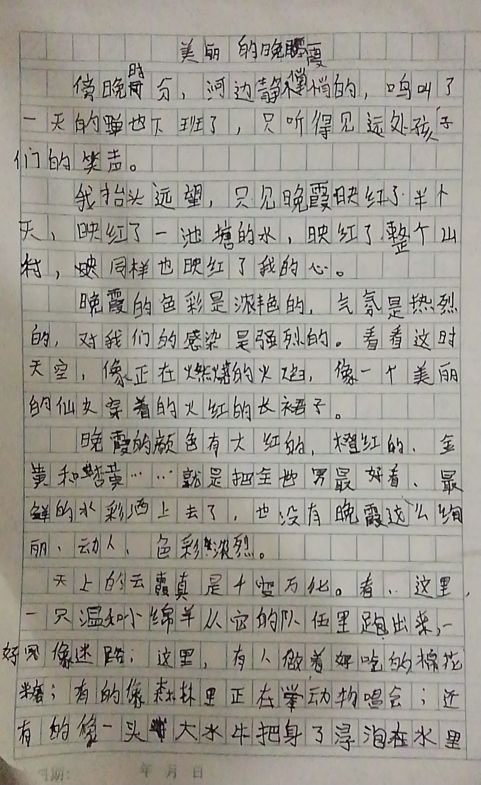 美丽的晚霞
傍晚时分，河边静悄悄的，鸣叫了
一天的蝉也下班了，只听得见远处孩子
们的笑声。
我抬头远望，只见晚霞映红了半个
天，映红了一池塘的水，映红了整个山
村，映同样也映红了我的心。
晚霞的色彩是浓艳的，气氛是热烈
的，对我们的感染是强烈的。看看这时
天空，像正在燃烧的火焰，像一个美丽
的仙女穿着的火红的长裙子。
晚霞的颜色有大红的，橙红的、金
黄和橙黄……就是把全世界最好看、最
鲜的水彩洒上去了，也没有晚霞这么绚
丽、动人、色彩浓烈。
天上的云霞真是千变万化。看，这里，
一只温和小绵羊从它的队伍里跑出来，
好像迷路；这里，有人做着好吃的棉花
糖；有的像森林里正在举动物唱会；还
有的像一头大水牛把身子浸泡在水里
年 月 日